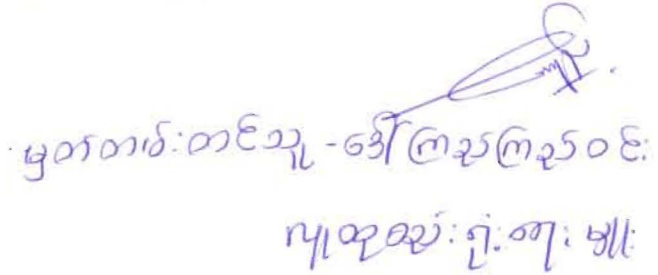 မှတ်တမ်းတင်သူ - ဒေါ်ကြည်ကြည်ဝင်း
လူထုစည်းရုံးရေးမှူး